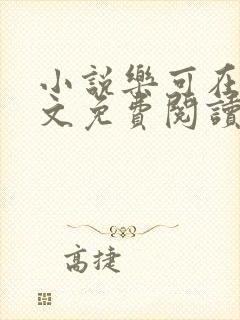 小說樂可在
文免費閱讀
高捷